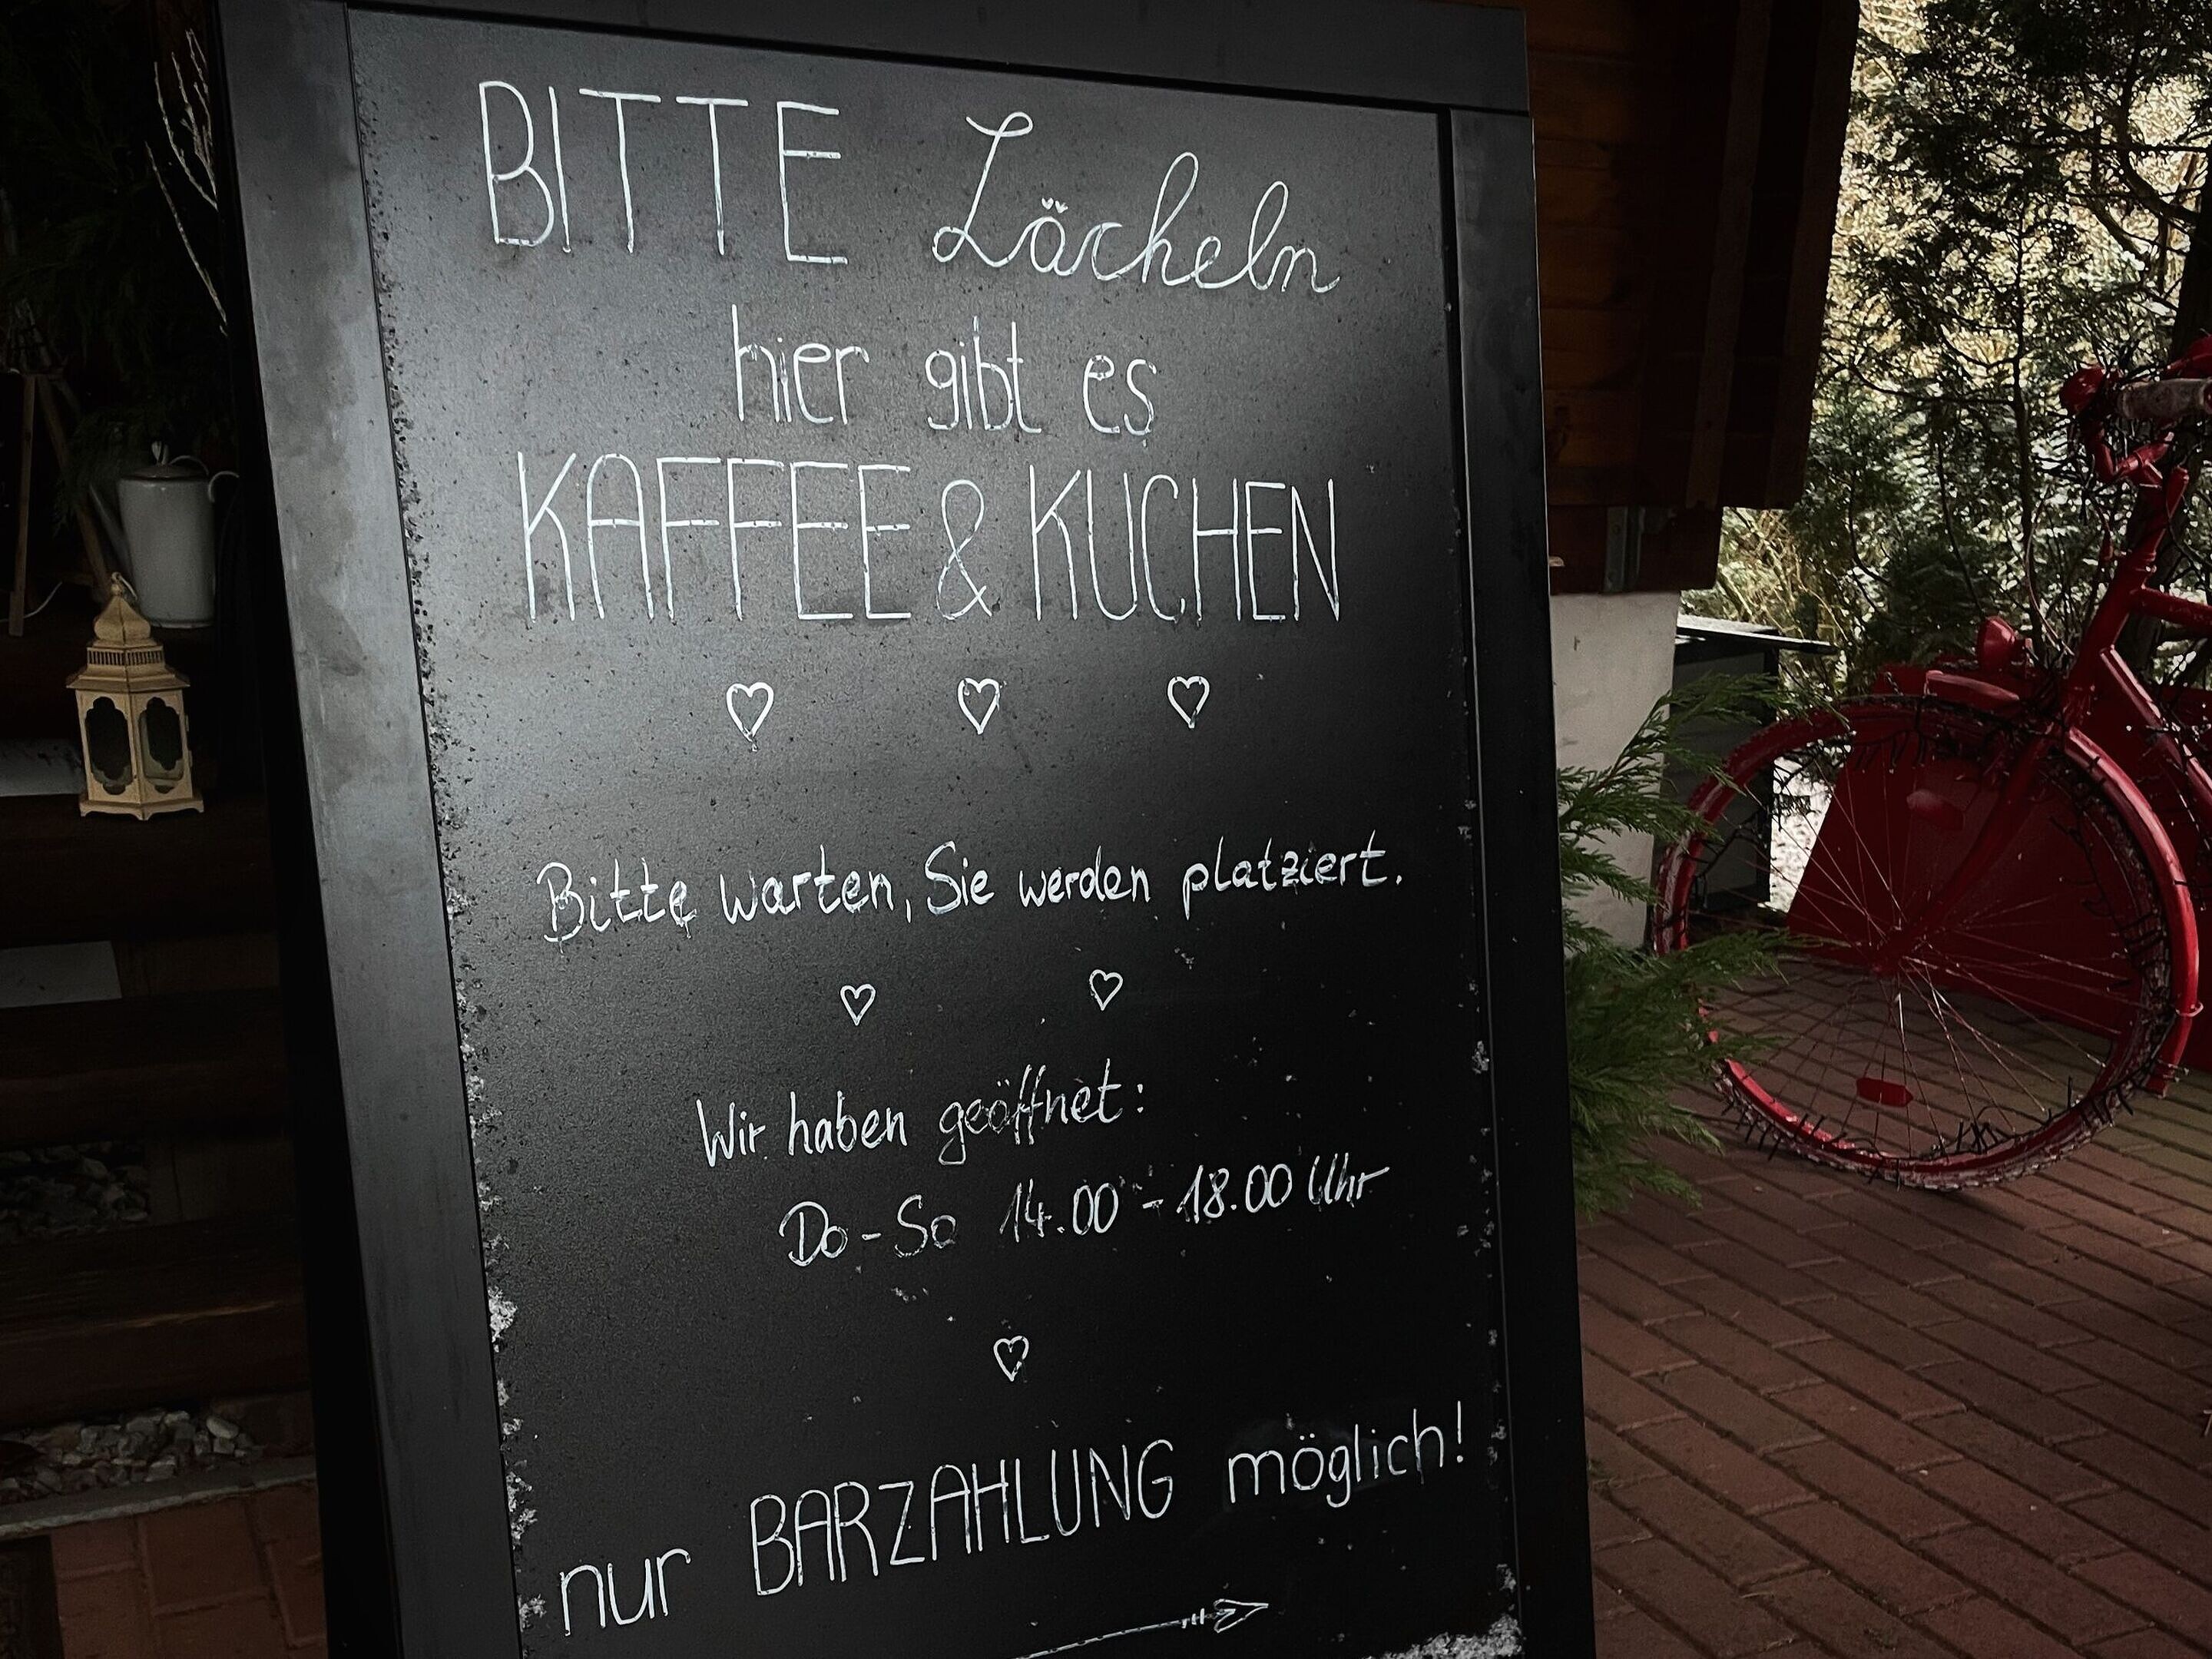 BITTE Lächeln
hier gibt es
KAFFEE & KUCHEN
Bitte warten, Sie werden platziert.
Wir haben geöffnet:
Do - So 14.00 - 18.00 Uhr
nur BARZAHLUNG möglich!